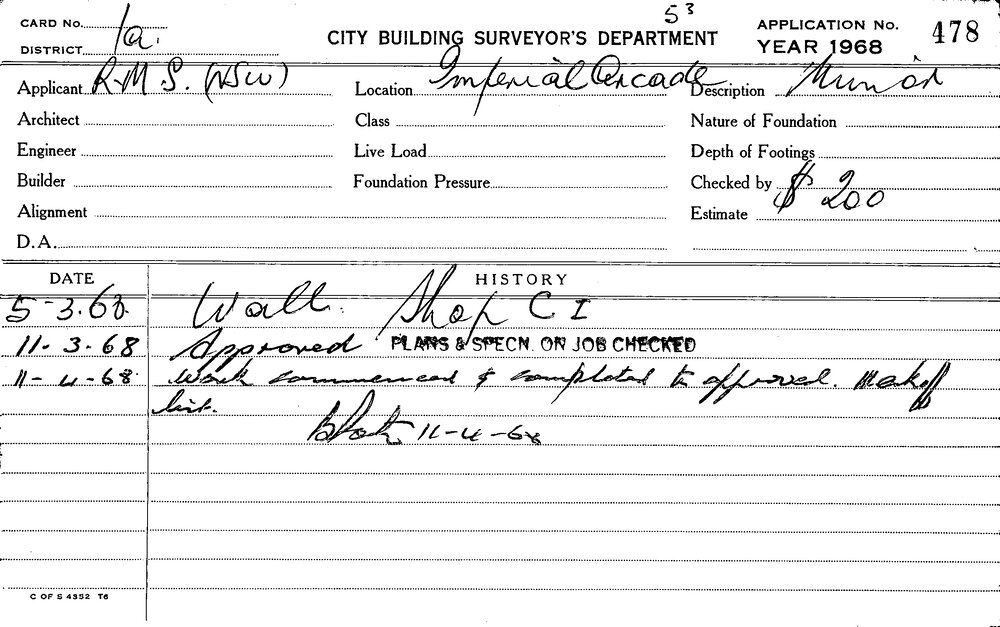 CARD No. 1a. 5³ APPLICATION No. 478
DISTRICT CITY BUILDING SURVEYOR'S DEPARTMENT YEAR 1968
Applicant R.M.S. (NSW) Location Imperial Arcade Description Minor
Architect Class Nature of Foundation
Engineer Live Load Depth of Footings
Builder Foundation Pressure Checked by
Alignment Estimate $ 200
D.A.
DATE HISTORY
5-3.68. Wall. Shop C I
11.3.68 Approved PLANS & SPECN. ON JOB CHECKED
11-4-68. Work commenced & completed to approval. Mark off
list.
11-4-68
C OF S 4352 T6